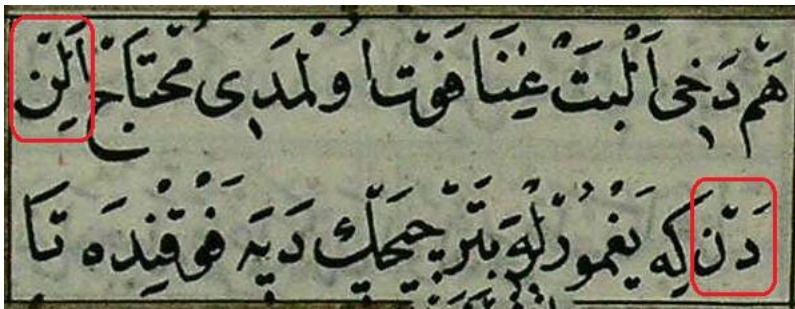 هَمْ دَخِى اَلْبَتْ غِنَا فَوْتْ اُولْمَدِى مُحْتَاجْ اَلِنْ
دَنْ كِه يَغْمُورْلَه بِتَرْ چِيچَكْ دَيَه فَوْقِنْدَه تَا